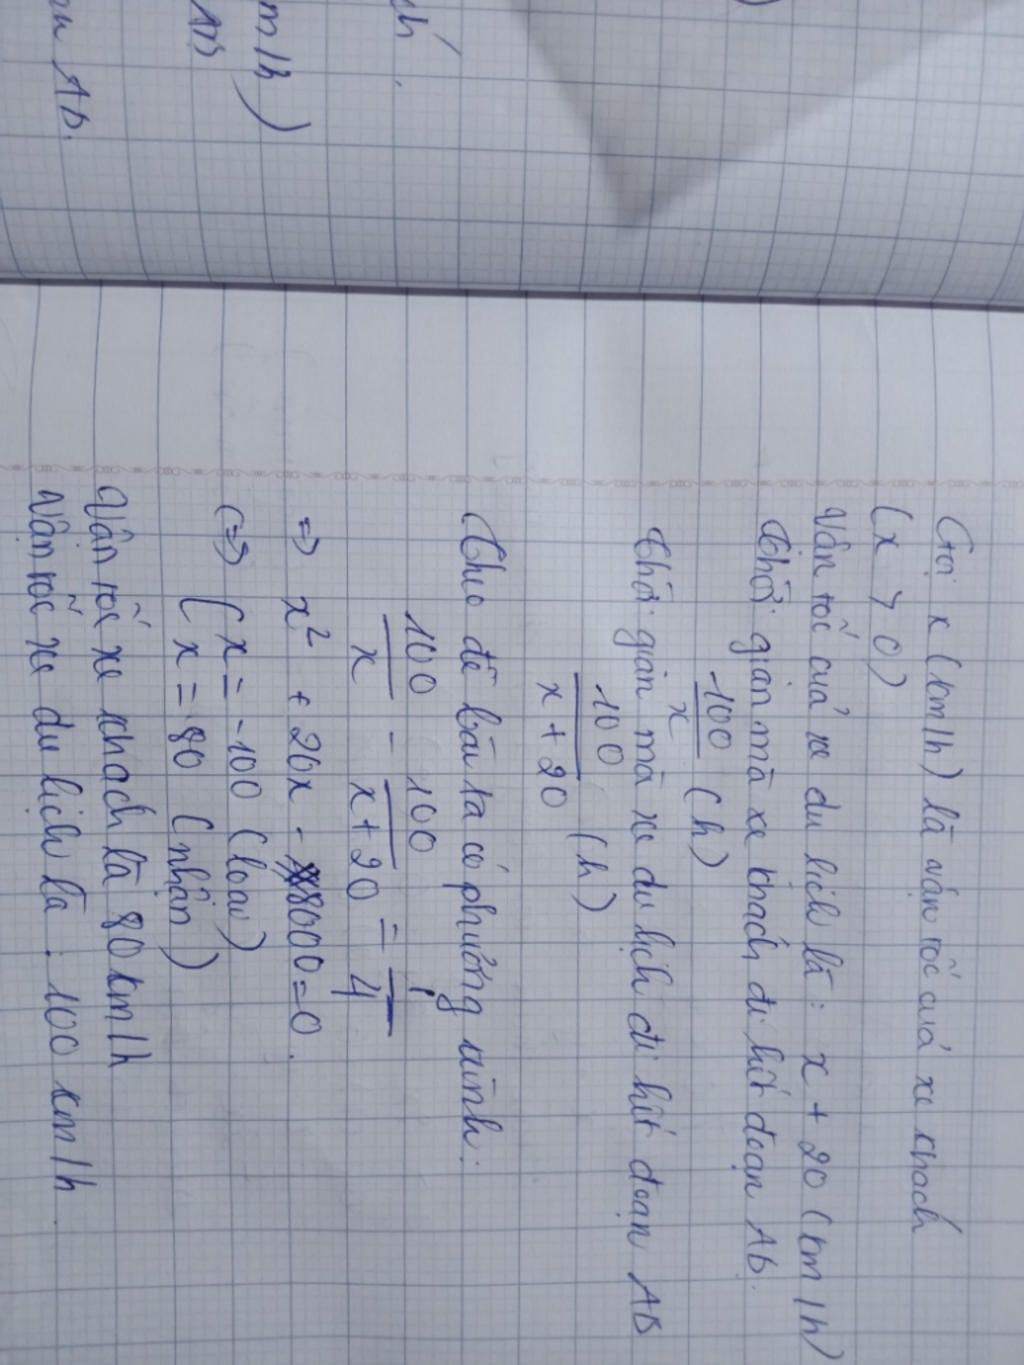 ch
km/h)
AB
AB.
Gọi x (km/h) là vận tốc của xe khách
(x > 0)
Vận tốc của xe du lịch là: x + 20 (km/h)
Thời gian mà xe khách đi hết đoạn AB.
100/x (h)
Thời gian mà xe du lịch đi hết đoạn AB
100/(x+20) (h)
Theo đề bài ta có phương trình:
100/x - 100/(x+20) = 1/4
=> x² + 20x - 8000 = 0.
(=>) { x = -100 (loại)
{ x = 80 (nhận)
Vận tốc xe khách là 80 km/h
Vận tốc xe du lịch là: 100 km/h.